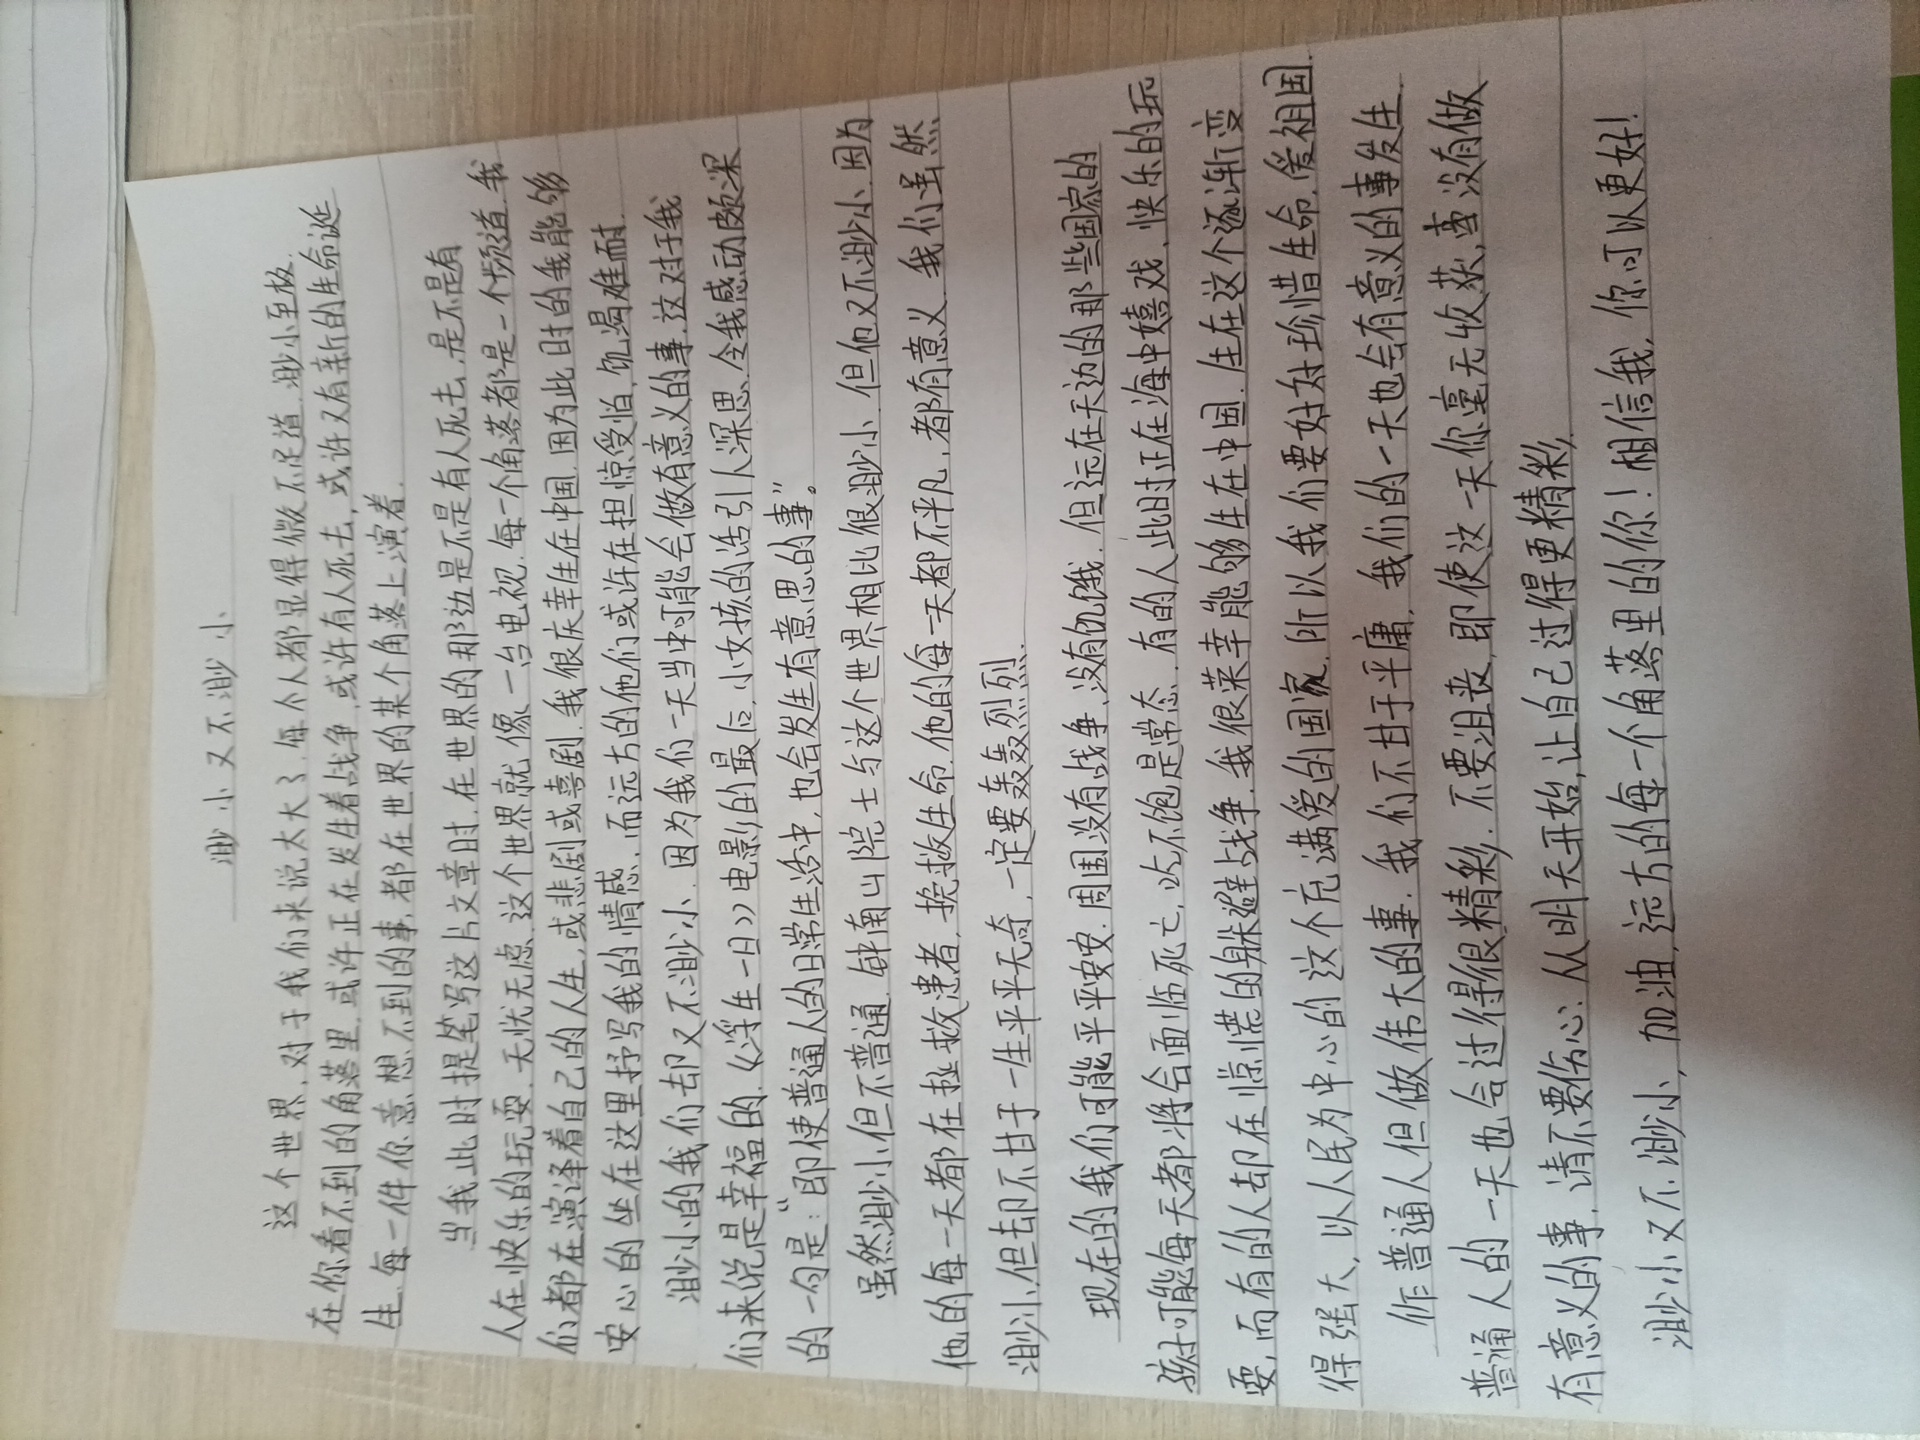 渺小又不渺小
这个世界,对于我们来说太大了.每个人都显得微不足道.渺小至极.
在你看不到的角落里,或许正在发生着战争,或许有人死去,或许又有新的生命诞
生.每一件你意想不到的事,都在世界的某个角落上演着.
当我此时提笔写这片文章时.在世界的那边是不是有人死去,是不是有
人在快乐的玩耍.无忧无虑.这个世界就像一台电视.每一个角落都是一个频道.我
们都在演译着自己的人生,或悲剧或喜剧.我很庆幸生在中国.因为此时的我能够
安心的坐在这里抒写我的情感.而远方的他们或许在担惊受怕,饥渴难耐.
渺小的我们却又不渺小.因为我们一天当中可能会做有意义的事.这对于我
们来说是幸福的.《浮生一日》电影的最后,小女孩的话引人深思.令我感动颇深
的一句是:“即使普通人的日常生活中,也会发生有意思的事”。
虽然渺小但不普通.钟南山院士与这个世界相比很渺小.但他又不渺小.因为
他的每一天都在拯救患者,挽救生命.他的每一天都不平凡,都有意义.我们虽然
渺小,但却不甘于一生平平无奇,一定要轰轰烈烈.
现在的我们可能平平安安.周围没有战争,没有饥饿.但远在天边的那些国家的
孩子可能每天都将会面临死亡,吃不饱是常态.有的人此时正在海中嬉戏,快乐的玩
耍,而有的人却在惊慌的躲避战争.我很荣幸能够生在中国.生在这个逐渐变
得强大,以人民为中心的这个充满爱的国家.所以我们要好好珍惜生命.爱祖国.
作普通人但做伟大的事.我们不甘于平庸,我们的一天也会有意义的事发生.
普通人的一天也会过得很精彩.不要沮丧,即使这一天你毫无收获,或没有做
有意义的事.请不要伤心.从明天开始,让自己过得更精彩,
渺小又不渺小,加油,远方的每一个角落里的你!相信我,你可以更好!